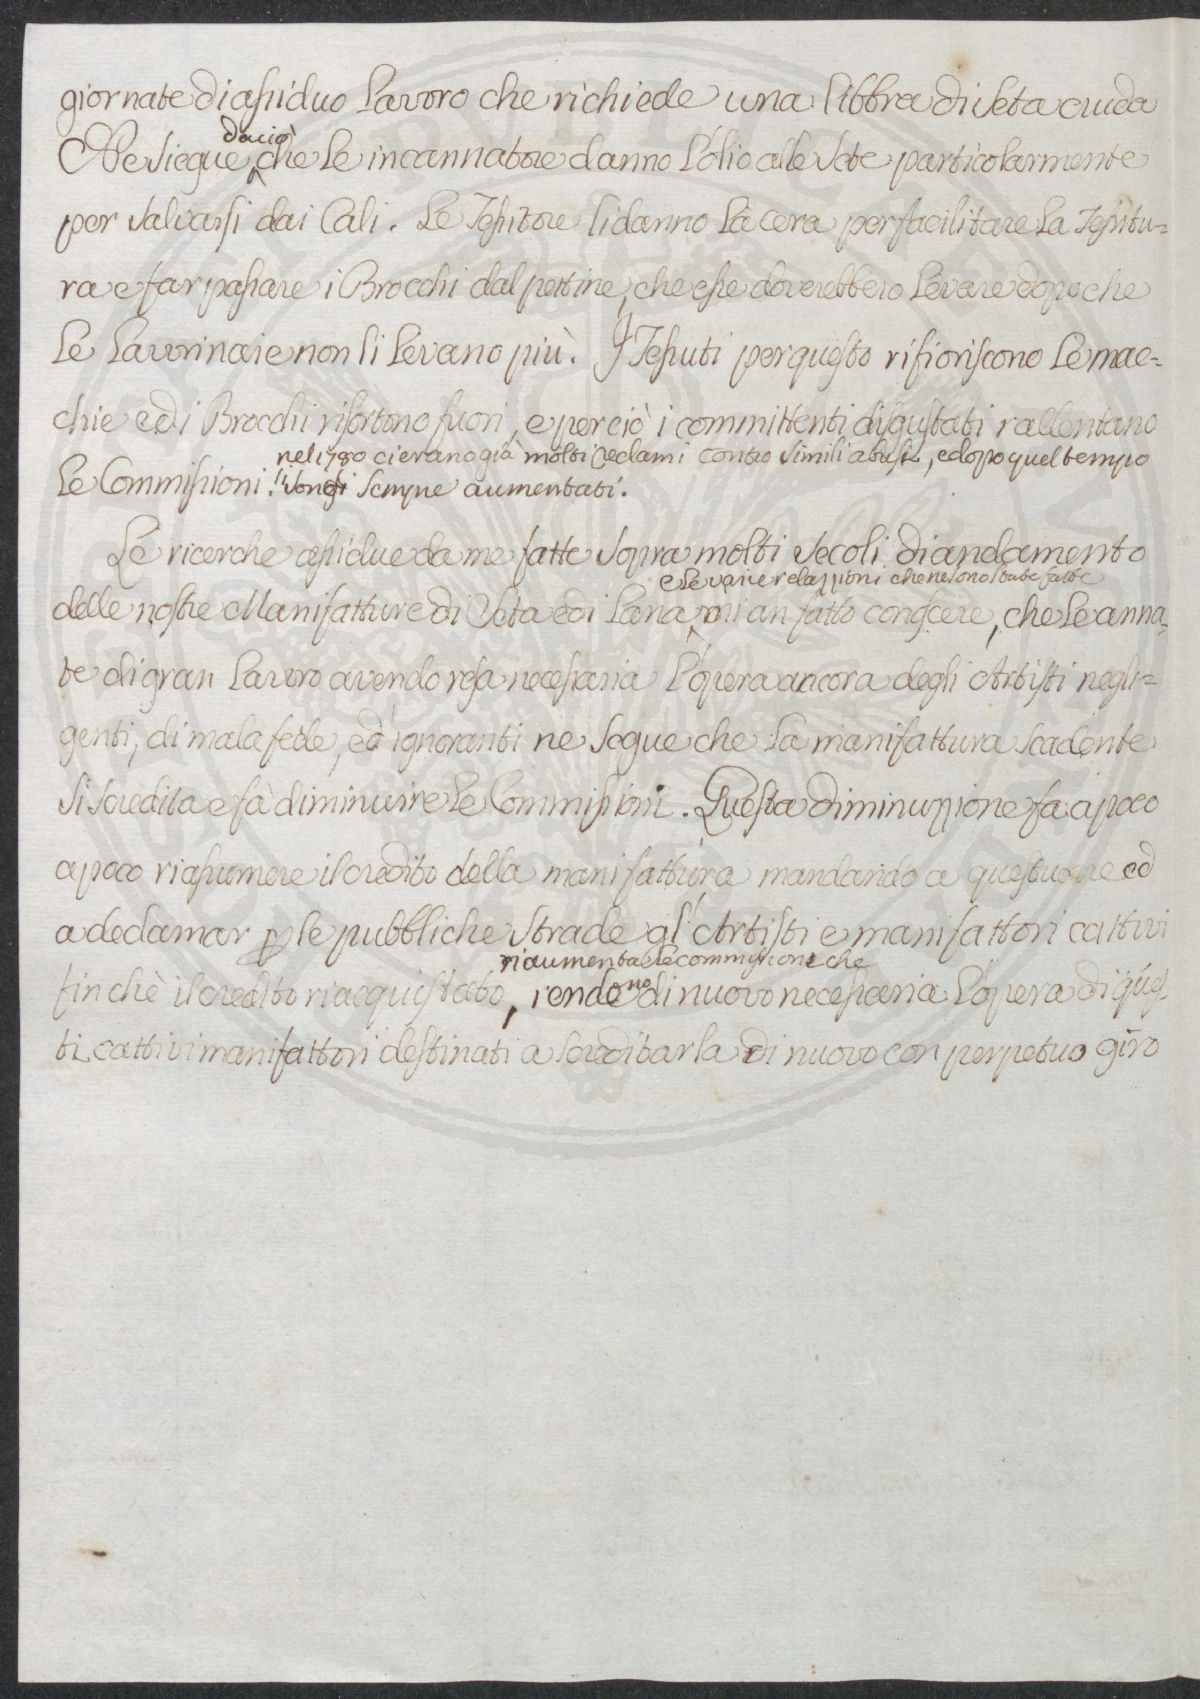 giornate di assiduo Lavoro che richiede una Libbra di Seta cruda
Ne siegue da ciò che Le incannatore danno L'olio alle Sete particolarmente
per salvarsi dai Cali. Le Tessitore li danno La cera per facilitare La Tessitu=
ra e far passare i Brocchi dal pettine, che esse doverebbero Levare dopo che
Le Lavorinaie non li Levano più. I Tessuti per questo rifioriscono Le mac=
chie ed i Brocchi risortono fuori, e perciò i committenti disgustati rallentano
nel 1780 ci erano già molti reclami contro simili abusi, e dopo quel tempo
Le Commissioni. si sono sempre aumentati.
Le ricerche assidue da me fatte sopra molti secoli di andamento
e le varie relazzioni che ne sono state fatte
delle nostre Manifatture di Seta e di Lana, mi an fatto conoscere, che Le anna=
te di gran Lavoro avendo resa necessaria L'opera ancora degli Artisti negli=
genti, di mala fede, ed ignoranti ne segue che La manifattura scadente
si scredita e fà diminuire Le Commissioni. Questa diminuzzione fa a poco
a poco riassumere il credito della manifattura mandando a questuare ed
a declamar per le pubbliche strade gl'Artisti e manifattori cattivi
riaumenta le commissioni che
finchè il credito riacquistato, rendono di nuovo necessaria L'opera di ques=
ti cattivi manifattori destinati a screditarla di nuovo con perpetuo giro